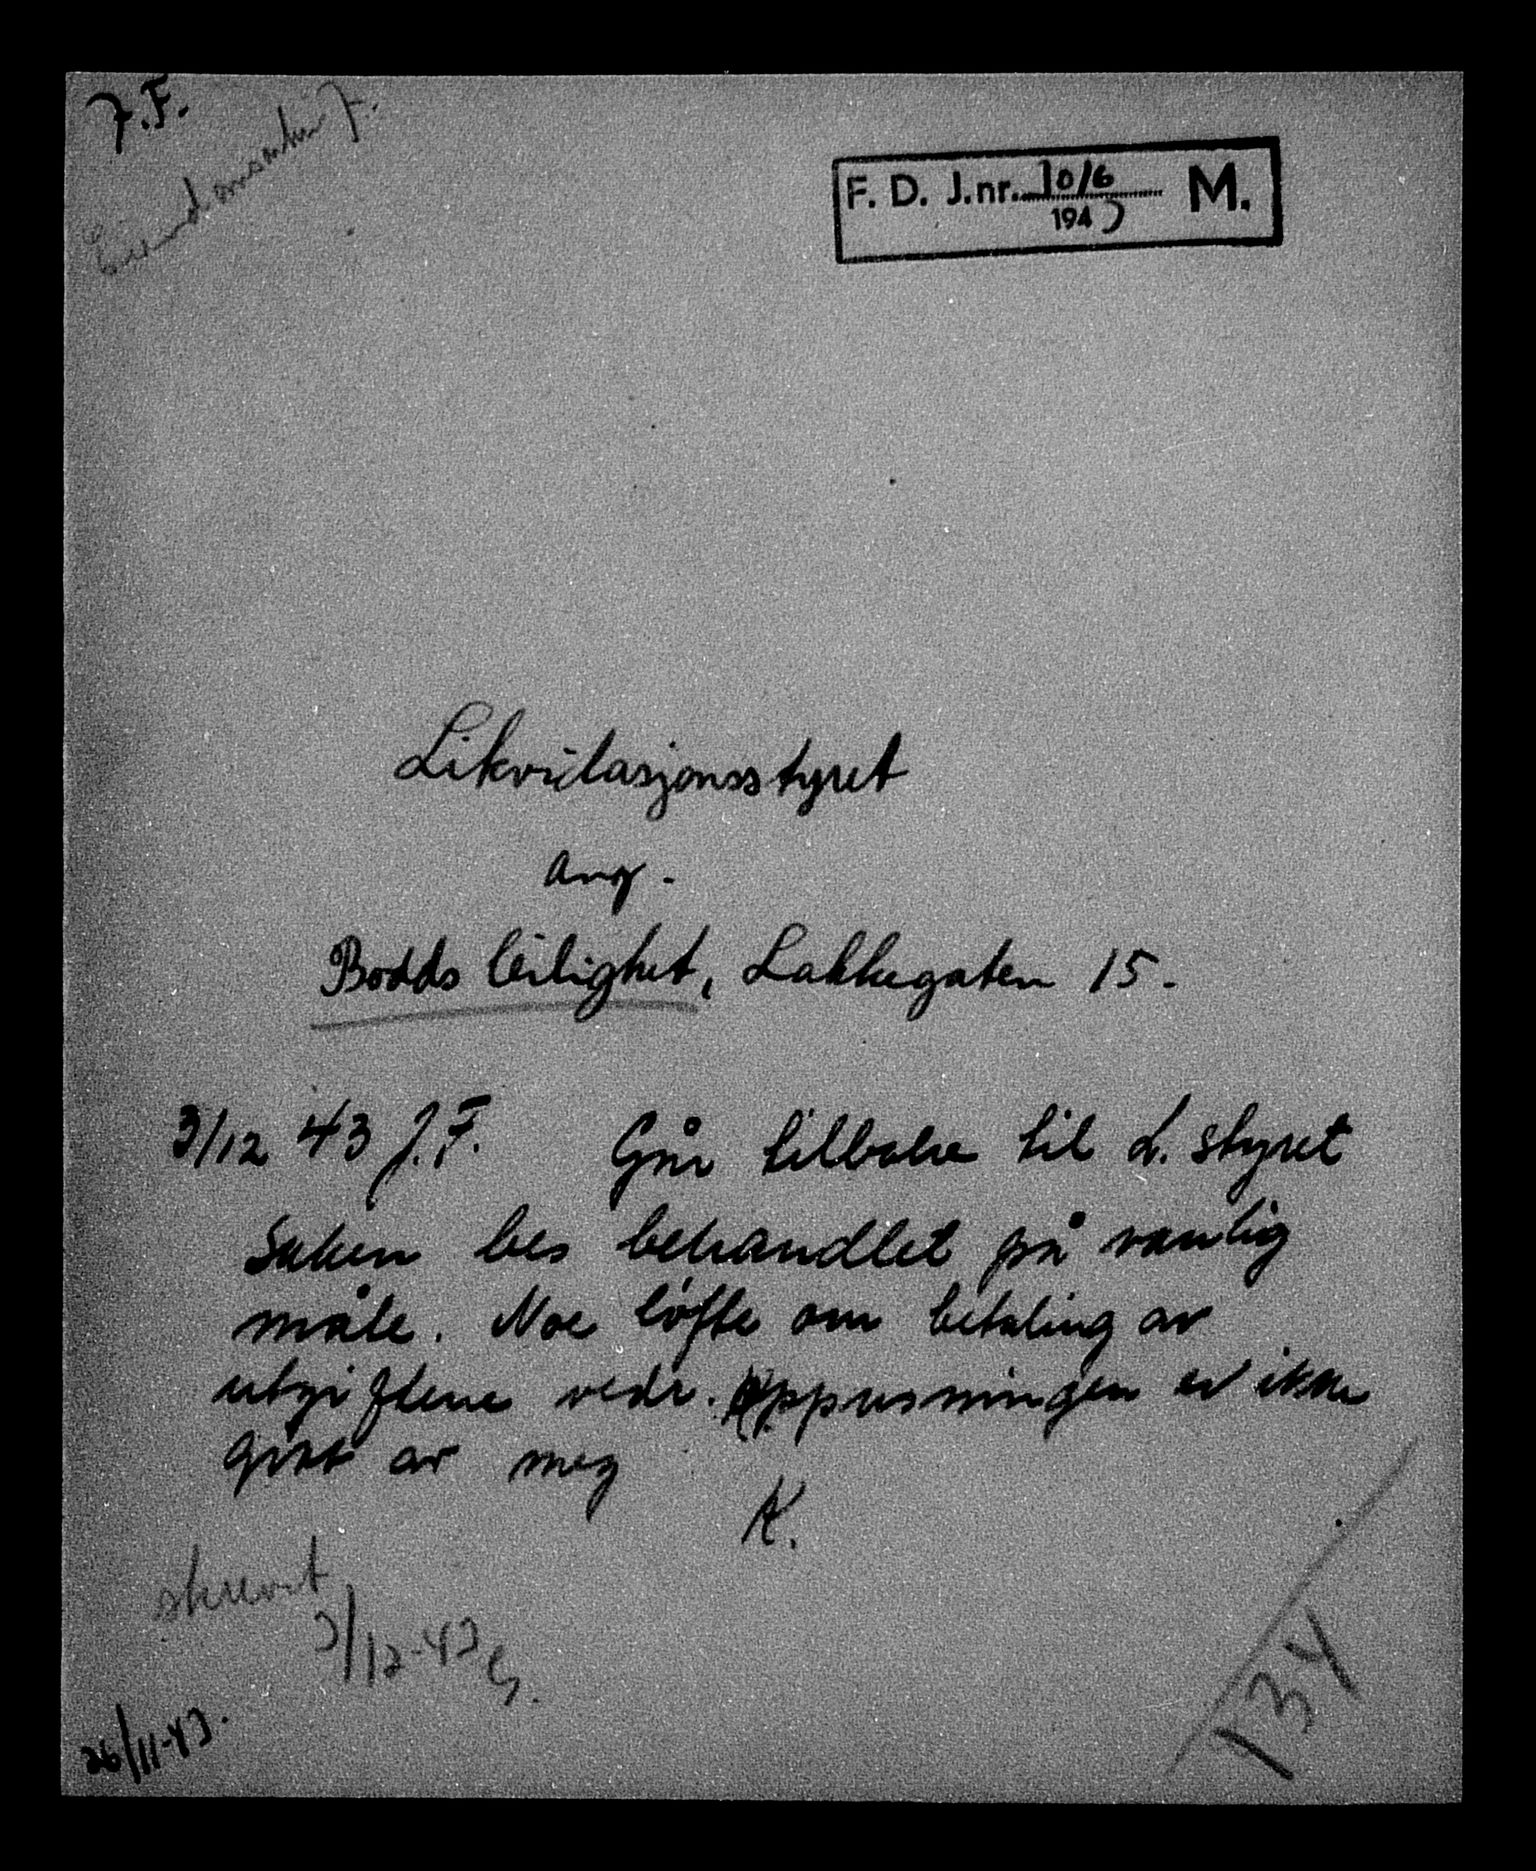 J.F.
F. D. J.nr. 1016 M.
1943
Likvidasjonsstyret
ang.
Bodds leilighet, Lakkegaten 15.
3/12 43 J.F. Går tilbake til L. styret
Saken bes behandlet på vanlig
måte. Noe løfte om betaling av
utgiftene vedr. oppussningen er ikke
gitt av meg
K.
skrevet
3/12-43
26/11-43.
134